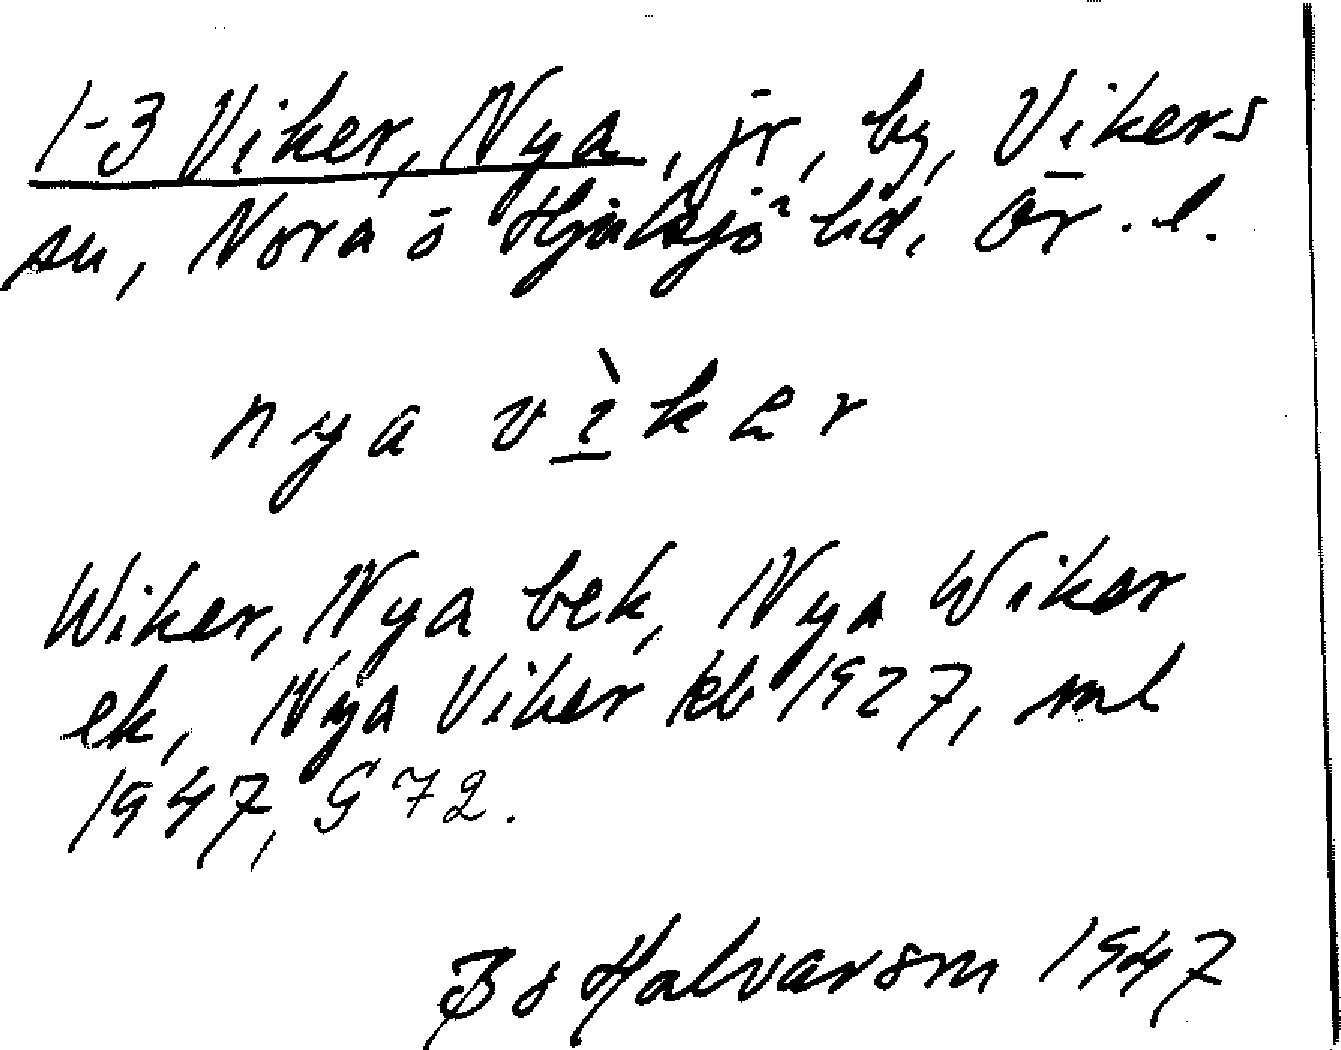 1-3 Viker, Nya, jr, by, Vikers
sn, Nora o Hjulsjö hd, Ör. l.
nya vìker
Wiker, Nya bek, Nya Wiker
ek, Nya Viker kb 1927, ml
1947, G 72.
Bo Halvarson 1947